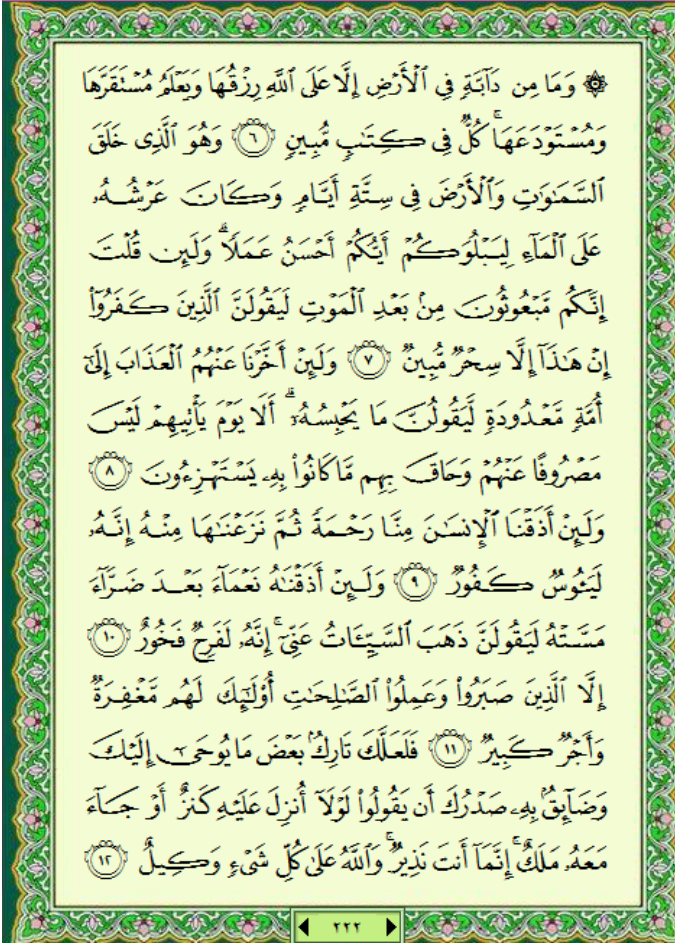 ۞ وَمَا مِن دَآبَّةٍ فِي ٱلْأَرْضِ إِلَّا عَلَى ٱللَّهِ رِزْقُهَا وَيَعْلَمُ مُسْتَقَرَّهَا
وَمُسْتَوْدَعَهَا ۚ كُلٌّ فِي كِتَٰبٍ مُّبِينٍ ﴿٦﴾ وَهُوَ ٱلَّذِى خَلَقَ
ٱلسَّمَٰوَٰتِ وَٱلْأَرْضَ فِي سِتَّةِ أَيَّامٍ وَكَانَ عَرْشُهُۥ
عَلَى ٱلْمَآءِ لِيَبْلُوَكُمْ أَيُّكُمْ أَحْسَنُ عَمَلًا ۗ وَلَئِن قُلْتَ
إِنَّكُم مَّبْعُوثُونَ مِنۢ بَعْدِ ٱلْمَوْتِ لَيَقُولَنَّ ٱلَّذِينَ كَفَرُوٓا۟
إِنْ هَٰذَآ إِلَّا سِحْرٌ مُّبِينٌ ﴿٧﴾ وَلَئِنْ أَخَّرْنَا عَنْهُمُ ٱلْعَذَابَ إِلَىٰٓ
أُمَّةٍ مَّعْدُودَةٍ لَّيَقُولُنَّ مَا يَحْبِسُهُۥٓ ۗ أَلَا يَوْمَ يَأْتِيهِمْ لَيْسَ
مَصْرُوفًا عَنْهُمْ وَحَاقَ بِهِم مَّا كَانُوا۟ بِهِۦ يَسْتَهْزِءُونَ ﴿٨﴾
وَلَئِنْ أَذَقْنَا ٱلْإِنسَٰنَ مِنَّا رَحْمَةً ثُمَّ نَزَعْنَٰهَا مِنْهُ إِنَّهُۥ
لَيَـُٔوسٌ كَفُورٌ ﴿٩﴾ وَلَئِنْ أَذَقْنَٰهُ نَعْمَآءَ بَعْدَ ضَرَّآءَ
مَسَّتْهُ لَيَقُولَنَّ ذَهَبَ ٱلسَّيِّـَٔاتُ عَنِّىٓ ۚ إِنَّهُۥ لَفَرِحٌ فَخُورٌ ﴿١٠﴾
إِلَّا ٱلَّذِينَ صَبَرُوا۟ وَعَمِلُوا۟ ٱلصَّٰلِحَٰتِ أُو۟لَٰٓئِكَ لَهُم مَّغْفِرَةٌ
وَأَجْرٌ كَبِيرٌ ﴿١١﴾ فَلَعَلَّكَ تَارِكٌۢ بَعْضَ مَا يُوحَىٰٓ إِلَيْكَ
وَضَآئِقٌۢ بِهِۦ صَدْرُكَ أَن يَقُولُوا۟ لَوْلَآ أُنزِلَ عَلَيْهِ كَنزٌ أَوْ جَآءَ
مَعَهُۥ مَلَكٌ ۚ إِنَّمَآ أَنتَ نَذِيرٌ ۚ وَٱللَّهُ عَلَىٰ كُلِّ شَىْءٍ وَكِيلٌ ﴿١٢﴾
٢٢٢